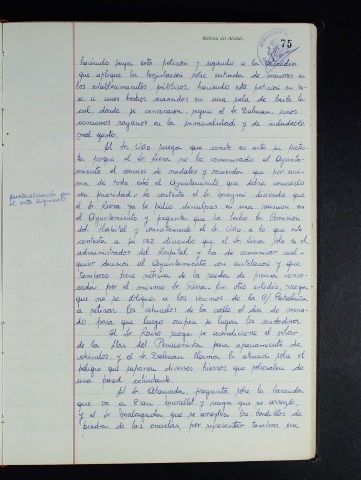 Rúbrica del Alcalde,
75
haciendo suya esta petición y rogando a la Alcaldía
que aplique la legislación sobre entrada de menores en
los establecimientos públicos, haciendo esta petición en ba-
se a unos hechos ocurridos en una sala de baile lo-
cal, donde se celebraron según el Sr. Dalmau, unos
concursos rayanos en la inmoralidad y de indudable
mal gusto.
El Sr. Viso ruega que conste en acta su protes-
ta porque el Sr. Riera no ha comunicado al Ayunta-
miento el concurso de modales y recuerda que por enci-
ma de todo está el Ayuntamiento que debía conocerlo
con prioridad. Le contesta el Sr. diciendo que
el Sr. Riera ya le pidió disculpas en una reunión en
el Ayuntamiento y pregunta que ha hecho la Comisión
del Hospital y concretamente el Sr. Viso a lo que este
contesta a su vez diciendo que el Sr. Riera solo es el
administrador del Hospital y ha de comunicar cual-
quier decisión al Ayuntamiento con antelación y que
tampoco tiene noticia de la rueda de prensa convo-
cada por el mismo Sr. Riera. Por otro estadio, ruega
que no se obligue a los vecinos de la C/
a retirar los vehículos de la calle el día de merca-
do para que luego ocupen su lugar los vendedores.
El Sr. ruega se acondicione el solar
de la Llar del Pensionista para aparcamiento de
vehículos y el Sr. Dalmau llama la atención sobre el
peligro que suponen diversos hierros que sobresalen de
una pared colindante.
El Sr. Alameda, pregunta sobre la baranda
que va a Can Morellet y ruega que se arregle,
y el Sr. que se arreglen los bordillos de
piedra de las escuelas, por representar también un